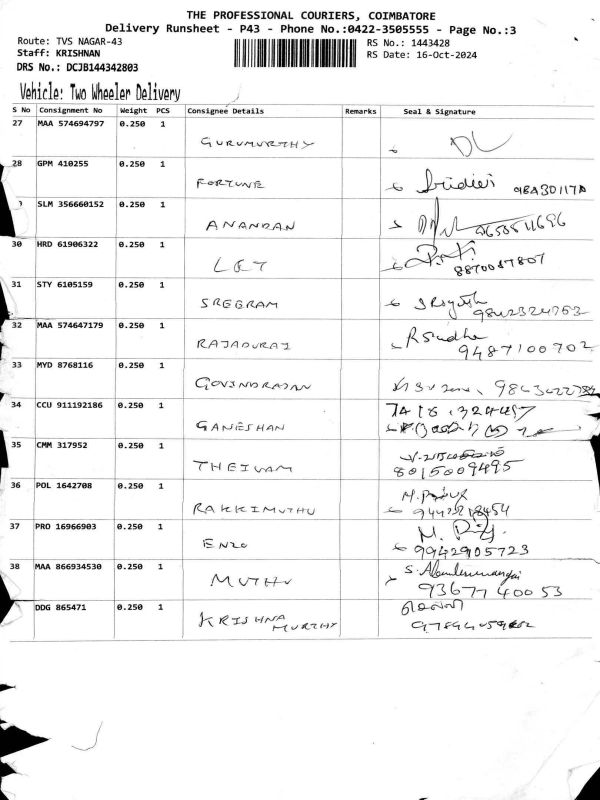 THE PROFESSIONAL COURIERS, COIMBATORE
Delivery Runsheet - P43 - Phone No.:0422-3505555 - Page No.:3
Route: TVS NAGAR-43 RS No.: 1443428
Staff: KRISHNAN RS Date: 16-Oct-2024
DRS No.: DCJB144342803
Vehicle: Two Wheeler Delivery
S No Consignment No Weight PCS Consignee Details Remarks Seal & Signature
27 MAA 574694797 0.250 1
GURUMURTHY
28 GPM 410255 0.250 1
FORTUNE
SLM 356660152 0.250 1
ANANDAN
30 HRD 61906322 0.250 1
LGT 8870087807
31 STY 6105159 0.250 1
SREERAM 9842324753
32 MAA 574647179 0.250 1
RAJADURAI R Sudha
9487100702
33 MYD 8768116 0.250 1
GOVINDRAJAN
34 CCU 911192186 0.250 1
GANESHAN
35 CMM 317952 0.250 1
THEIVAM 8015009495
36 POL 1642708 0.250 1
RAKKIMUTHU
37 PRO 16966903 0.250 1
ENZO 9942905723
38 MAA 866934530 0.250 1
MUTHU 9367740053
DDG 865471 0.250 1
KRISHNA
MURTHY